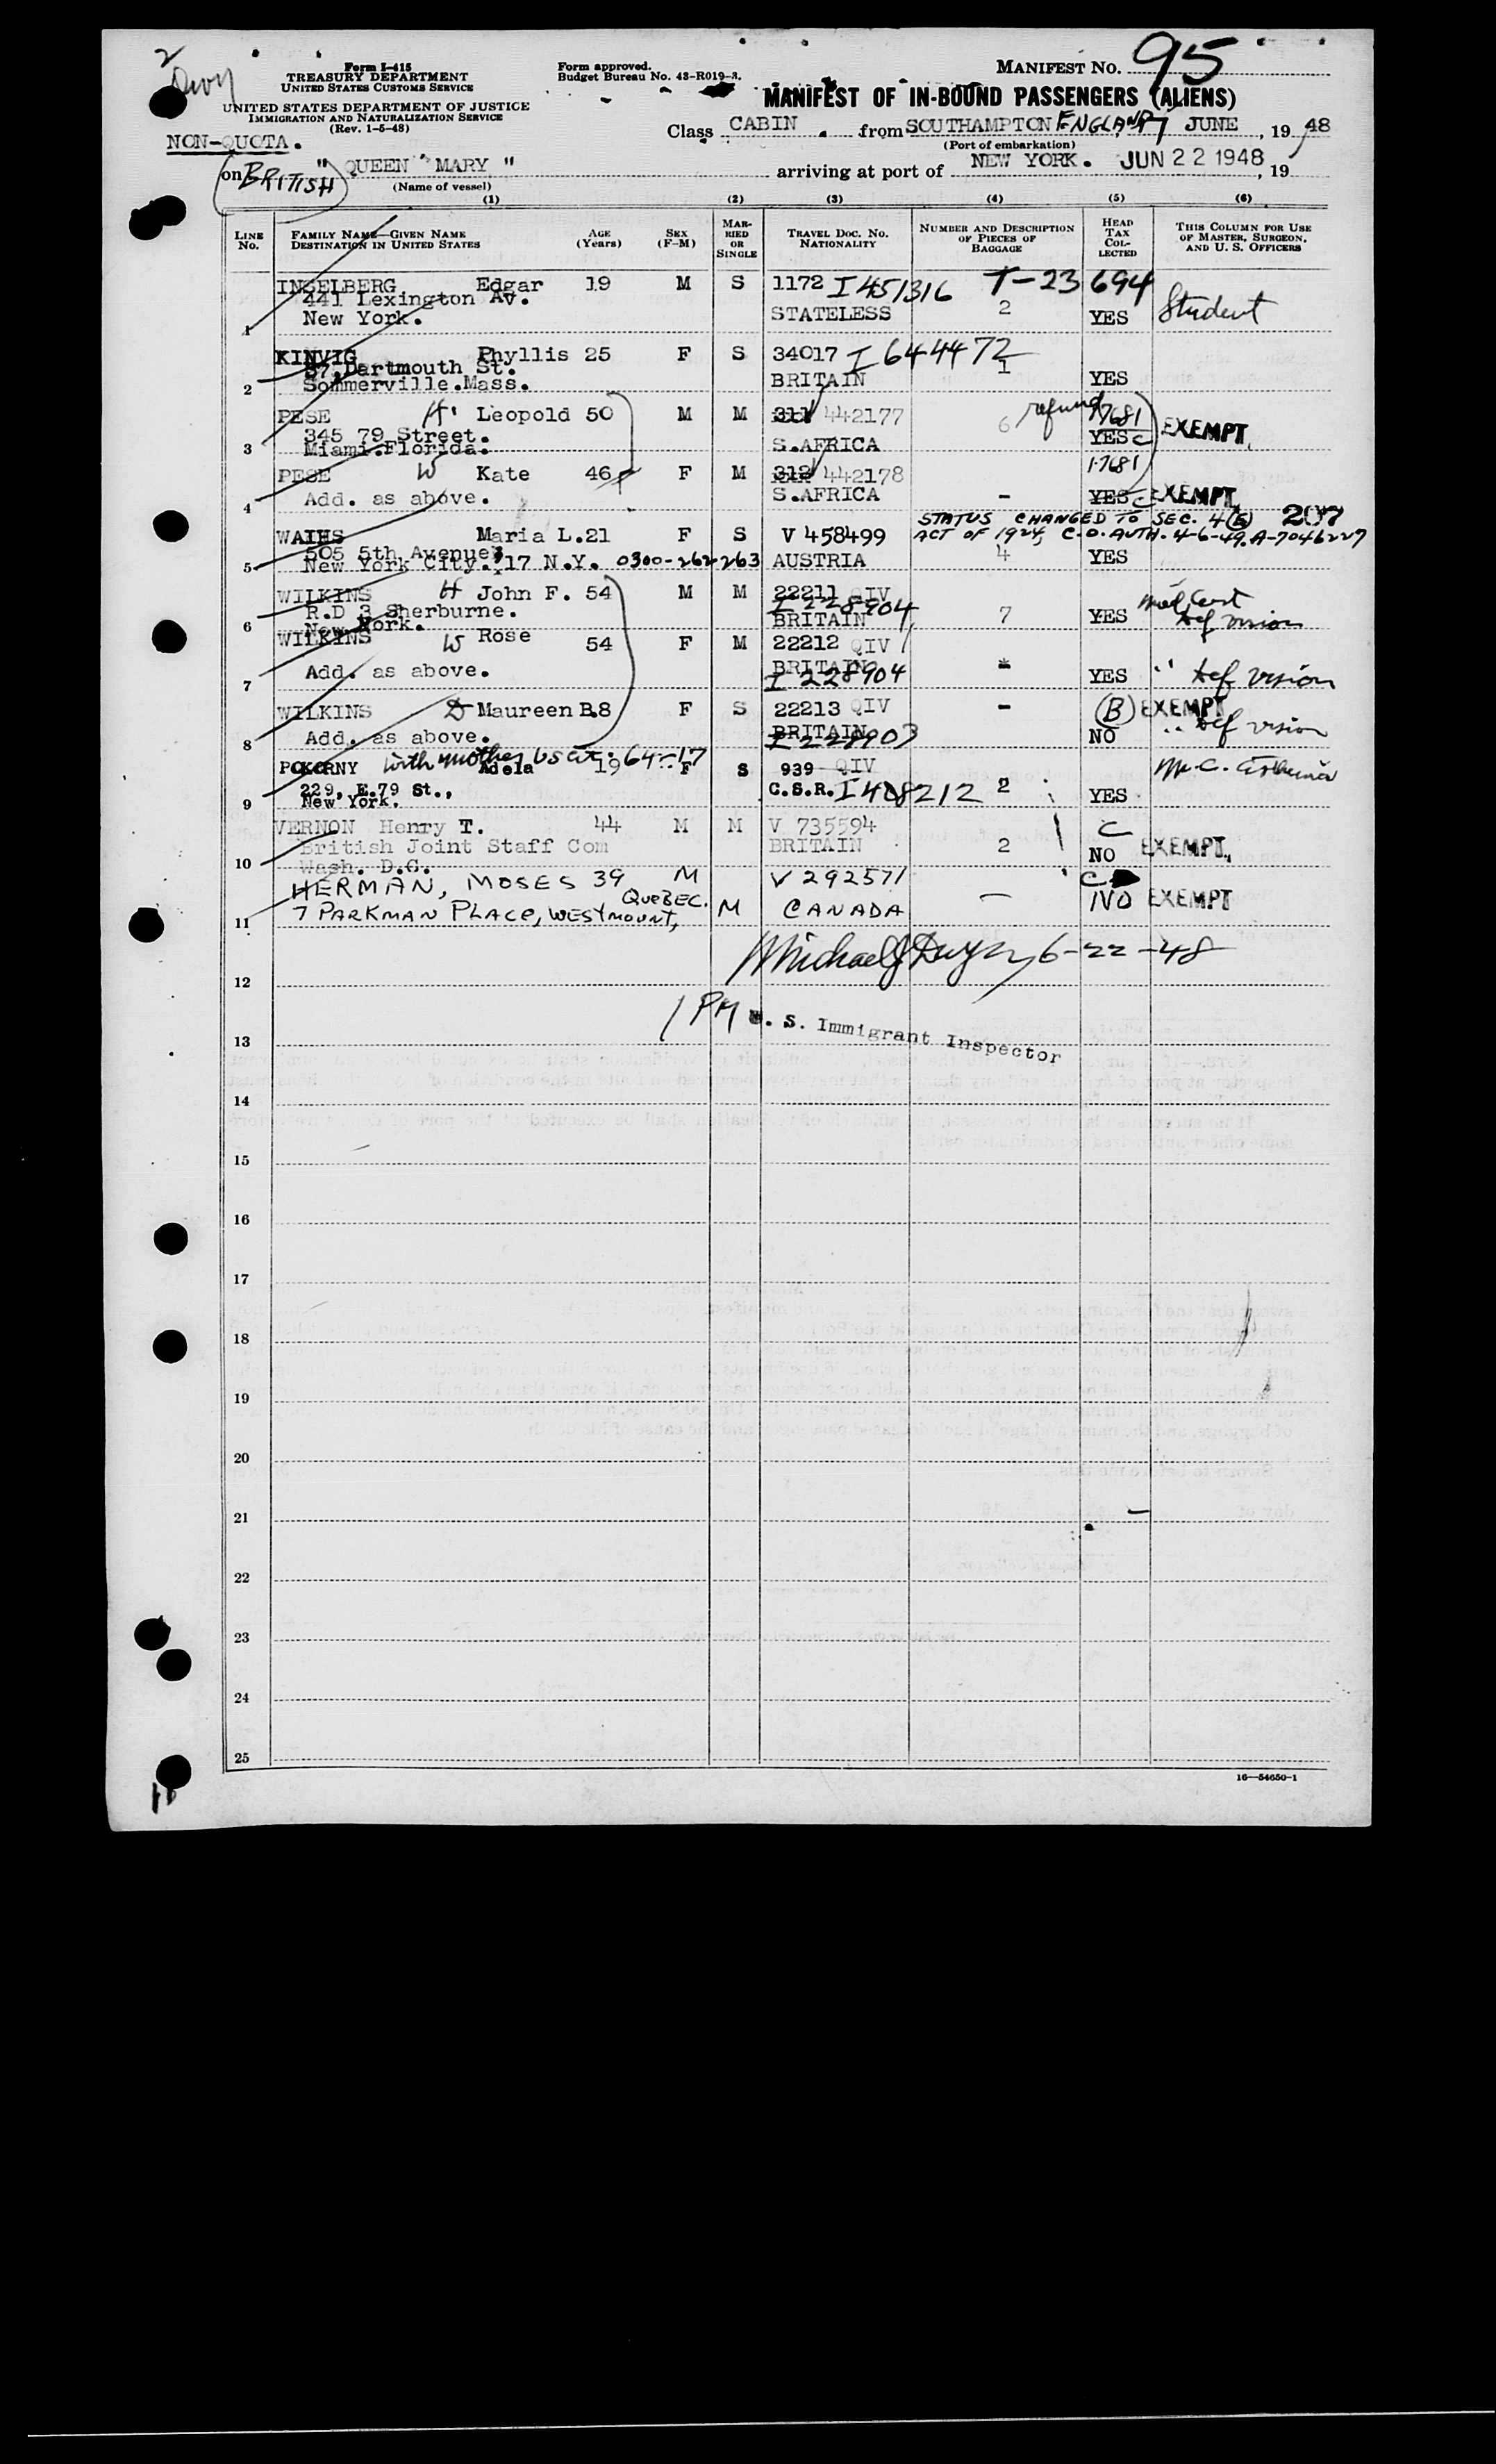 2
Form I-415
TREASURY DEPARTMENT
UNITED STATES CUSTOMS SERVICE
UNITED STATES DEPARTMENT OF JUSTICE
IMMIGRATION AND NATURALIZATION SERVICE
(Rev. 1-5-48)
Form approved.
Budget Bureau No. 43-R019-3.
MANIFEST NO. 95
MANIFEST OF IN-BOUND PASSENGERS (ALIENS)
NON-QUOTA.
Class CABIN . from SOUTHAMPTON ENGLAND, 17 JUNE, 1948
(Port of embarkation)
on BRITISH " QUEEN MARY " arriving at port of NEW YORK. JUN 22 1948, 19
(Name of vessel)
(1) (2) (3) (4) (5) (6)
LINE No. FAMILY NAME—GIVEN NAME DESTINATION IN UNITED STATES AGE (Years) SEX (F-M) MARRIED OR SINGLE TRAVEL DOC. NO. NATIONALITY NUMBER AND DESCRIPTION OF PIECES OF BAGGAGE HEAD TAX COLLECTED THIS COLUMN FOR USE OF MASTER, SURGEON, AND U. S. OFFICERS
INSELBERG Edgar 19 M S 1172 I 451316 T-23 694
441 Lexington Av.
1 New York. STATELESS 2 YES Student
KINVIG Phyllis 25 F S 34017 I 644472
37, Dartmouth St.
2 Sommerville.Mass. BRITAIN 1 YES
PESE H Leopold 50 M M 311 442177 6 refund 17681
345 79 Street.
3 Miami.Florida. S.AFRICA YES C EXEMPT.
PESE W Kate 46 F M 312 442178 17681
4 Add. as above. S.AFRICA - YES C EXEMPT.
STATUS CHANGED TO SEC. 4(E) 207
WAIHS Maria L.21 F S V 458499 ACT OF 1924, C.O. AUTH. 4-6-49. A-7046227
505 5th Avenue
5 New York City. 17 N.Y. 0300-262263 AUSTRIA 4 YES
WILKINS H John F. 54 M M 22211 QIV
R.D 3 Sherburne. I 228904 Med Cert
6 New York. BRITAIN 7 YES def vision
WILKINS W Rose 54 F M 22212 QIV
7 Add. as above. BRITAIN I 228904 - YES " def vision
WILKINS D Maureen B.8 F S 22213 QIV - (B) EXEMPT
8 Add. as above. BRITAIN I 228903 NO " def vision
with mother
POKORNY Adela 19 F S 939 QIV M.C. asthenia
229, E.79 St.,
9 New York. C.S.R. I 408212 2 YES
VERNON Henry T. 44 M M V 735594 C
British Joint Staff Com BRITAIN 2
10 Wash. D.C. NO EXEMPT.
HERMAN, MOSES 39 M V 292571 C
11 7 PARKMAN PLACE, WESTMOUNT, QUEBEC. M CANADA — NO EXEMPT
Michael J Dwyer 6-22-48
12
1 PM U. S. Immigrant Inspector
13
14
15
16
17
18
19
20
21
22
23
24
25
16—54650-1
11